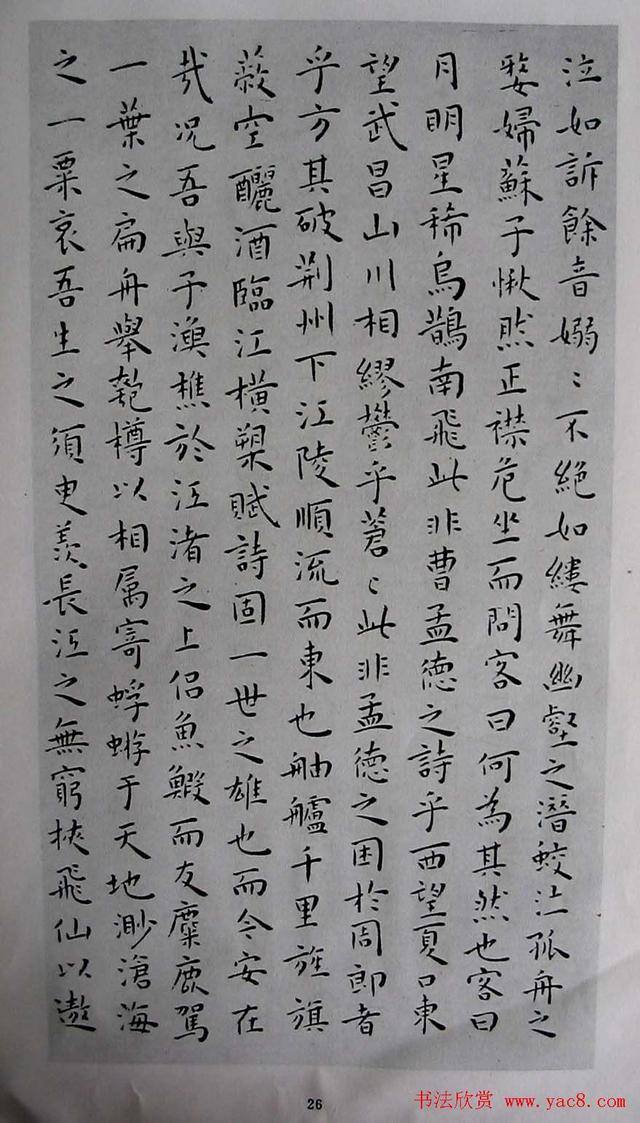 泣如訴餘音嫋〻不絕如縷舞幽壑之潛蛟泣孤舟之
嫠婦蘇子愀然正襟危坐而問客曰何為其然也客曰
月明星稀烏鵲南飛此非曹孟德之詩乎西望夏口東
望武昌山川相繆鬱乎蒼〻此非孟德之困於周郎者
乎方其破荊州下江陵順流而東也舳艫千里旌旗
蔽空釃酒臨江橫槊賦詩固一世之雄也而今安在
哉況吾與子漁樵於江渚之上侣魚鰕而友麋鹿駕
一葉之扁舟舉匏樽以相属寄蜉蝣于天地渺滄海
之一粟哀吾生之須臾羨長江之無窮挾飛仙以遨
26
书法欣赏 www.yac8.com